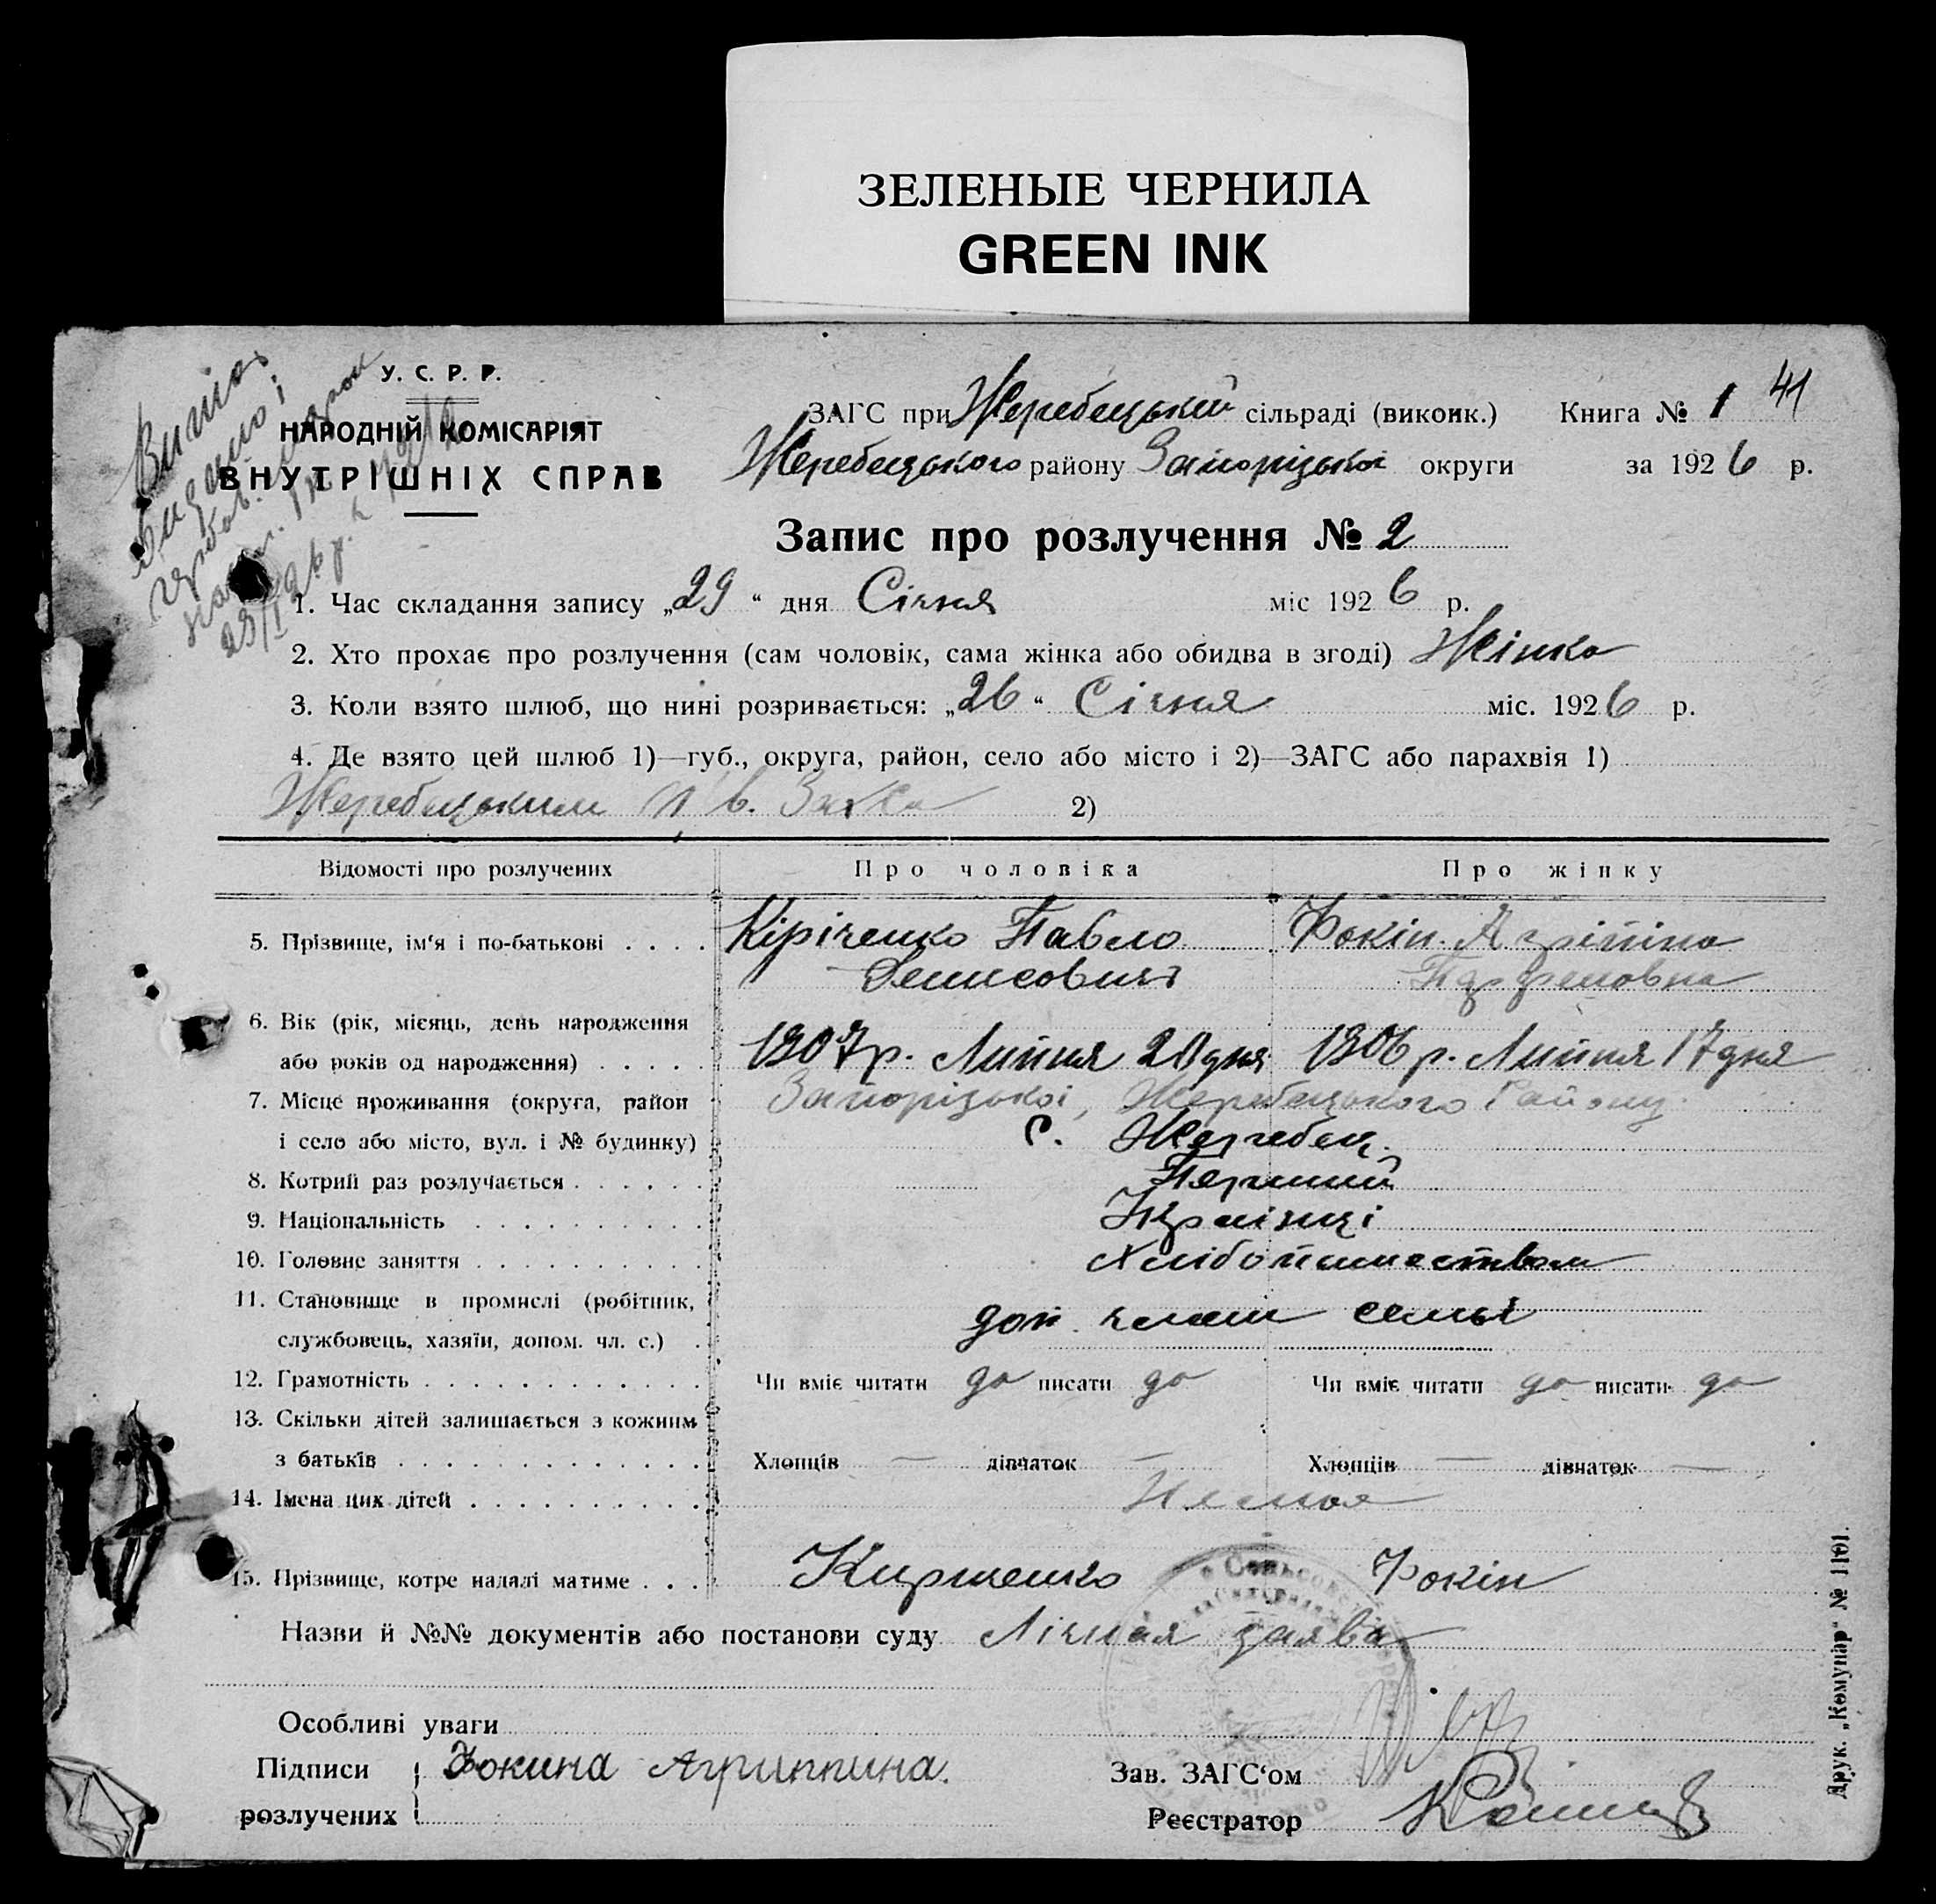 ЗЕЛЕНЫЕ ЧЕРНИЛА
GREEN INK
У. С. Р. Р.
НАРОДНІЙ КОМІСАРІЯТ
ВНУТРІШНІХ СПРАВ
ЗАГС при Жеребецькій сільраді (виконк.) Книга № 1 41
Жеребецького району Запорізької округи за 1926 р.
Запис про розлучення № 2
1. Час складання запису „29“ дня Січня міс 1926 р.
2. Хто прохає про розлучення (сам чоловік, сама жінка або обидва в згоді) Жінка
3. Коли взято шлюб, що нині розривається: „26“ Січня міс. 1926 р.
4. Де взято цей шлюб 1)—губ., округа, район, село або місто і 2)—ЗАГС або парахвія 1)
Жеребецьким 2)
Відомості про розлучених Про чоловіка Про жінку
5. Прізвище, ім‘я і по-батькові . . . . Кіріченко Павло Фокін Агріпіна
Денисович Парфеновна
6. Вік (рік, місяць, день народження
або років од народження) . . . . . 1907р. Липня 20 дня 1906 р. Липня 17 дня
7. Місце проживання (округа, район Запорізької, Жеребецького Району
і село або місто, вул. і № будинку) с. Жеребец.
8. Котрий раз розлучається . . . . . . Перший
9. Національність . . . . . . . . . . Украінці
10. Головне заняття . . . . . . . . . . Хлібопашеством
11. Становище в промислі (робітник,
службовець, хазяїн, допом. чл. с.) . доп. член семьі
12. Грамотність . . . . . . . . . . . . Чи вміє читати да писати да Чи вміє читати да писати да
13. Скільки дітей залишається з кожним
з батьків . . . . . . . . . . . . . Хлопців — дівчаток — Хлопців — дівчаток —
14. Імена цих дітей . . . . . . . . . . Немая
15. Прізвище, котре надалі матиме . . . Кириченко Фокін
Назви й №№ документів або постанови суду Лічная заява
Особливі уваги
Підписи Фокина Агриппина. Зав. ЗАГС‘ом
розлучених Реєстратор
Друк. „Комунар“ № 1101.